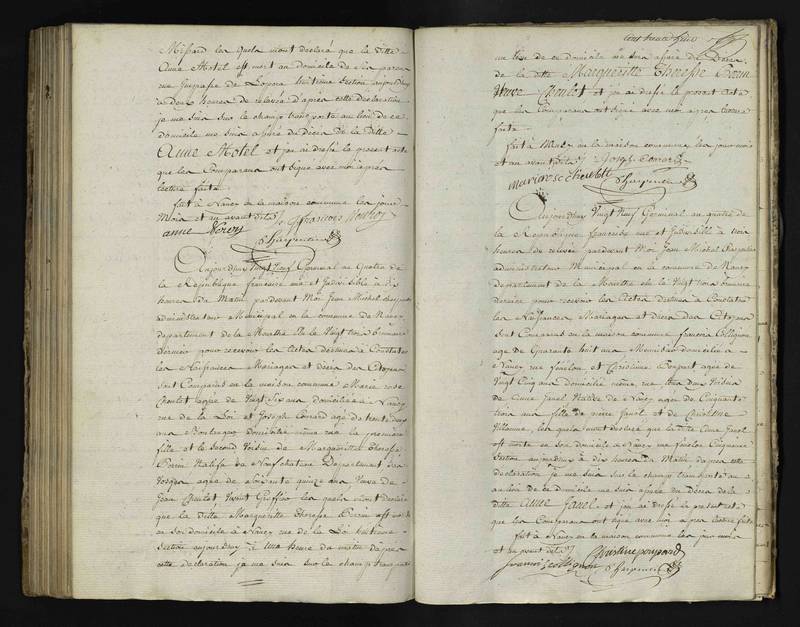 les quels m'ont déclaré que la ditte
Anne Motel est mort au domicile de son
huitieme Section aujourdhuy
a deux heures de relevée d'après cette déclaration
je me suis sur le champ transporté au lieu de ce
domicile me suis assuré du décès de la ditte
Anne Motel et j'ai dressé le présent acte
que les Comparans ont signé avec moi après
lecture faite
fait à Nancy en la maison commune les jour
Mois et an avant dits
françois
anne
Charpentier
Aujourdhuy Vingt Neuf Germinal an Quatre de
la République française une et Indivisible à dix
heures du Matin pardevant Moi Jean Michel Charpentier
administrateur Municipal en la commune de Nancy
departement de la Meurthe élu le Vingt trois brumaire
dernier pour recevoir les Actes destinés à Constater
les Naissances Mariages et décès des Citoyens
Sont Comparus en la maison commune Marie rose
agée de Vingt Six ans domiciliée à Nancy
rue de la Loi et Joseph agé de trente
ans domicilié même rue la premiere
fille et le Second Voisin de Margueritte Theresse
Perrin Native de Neufchateau Departement des
Vosges agée de Soixante quinze ans Veuve de
Jean les quels m'ont déclaré
que la ditte Margueritte Theresse Perrin est morte
en son domicile à Nancy rue de la Loi huitieme
Section aujourdhuy à une heure du matin d'après
cette déclaration je me suis sur le champ transporté
cent trente
au lieu de ce domicile me suis assuré du Décès
de la ditte Margueritte Theresse Perrin
Veuve et j'ai dressé le présent Acte
que les Comparans ont signé avec moi après lecture
faite
fait à Nancy en la maison commune les jour mois
et an avant dits
Charpentier
Aujourdhuy Vingt Neuf Germinal an quatre de
la République française une et Indivisible à trois
heures de relevée pardevant Moi Jean Michel Charpentier
administrateur Municipal en la commune de Nancy
departement de la Meurthe élu le Vingt trois brumaire
dernier pour recevoir les Actes destinés à Constater
les Naissances Mariages et décès des Citoyens
Sont Comparus en la maison commune francois Collignon
agé de Quarante huit ans Menuisier domicilié à
Nancy rue fénélon et Christine Poupart agée de
Vingt Cinq ans domiciliée même rue tous deux Voisins
de Anne Janel Native de Nancy agée de Cinquante
trois ans fille de pierre Janel et de Christine
les quels m'ont déclaré que la ditte Anne Janel
est morte en son domicile à Nancy rue fénélon Cinquieme
Section aujourdhuy à dix heures du Matin d'après cette
déclaration je me suis sur le champ transporté
au lieu de ce domicile me suis assuré du décès de la
ditte Anne Janel et j'ai dressé le présent acte
que les Comparans ont signé avec moi après lecture faite
fait à Nancy en la maison commune les jour mois
et an avant dits
Christine poupard
francois collignon
Charpentier